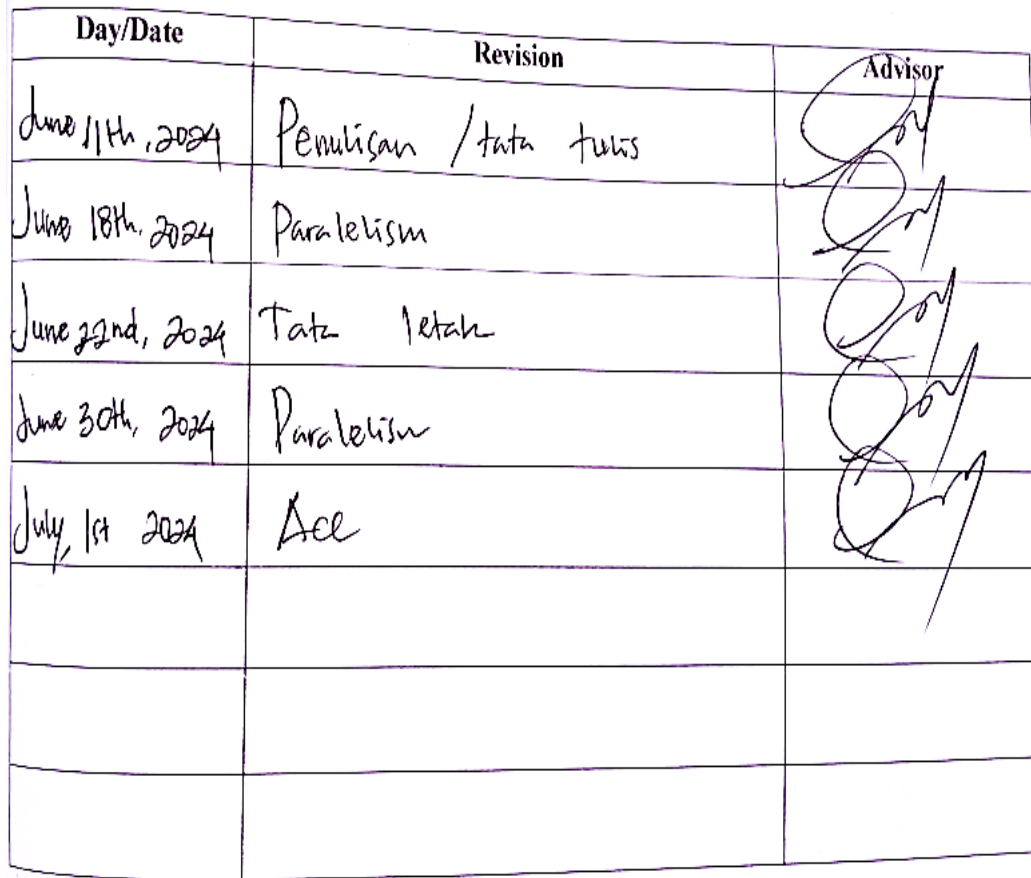 Day/Date Revision Advisor
June 11th, 2024 Penulisan / tata tulis
June 18th, 2024 Paralelism
June 22nd, 2024 Tata letak
June 30th, 2024 Paralelism
July, 1st 2024 Acc